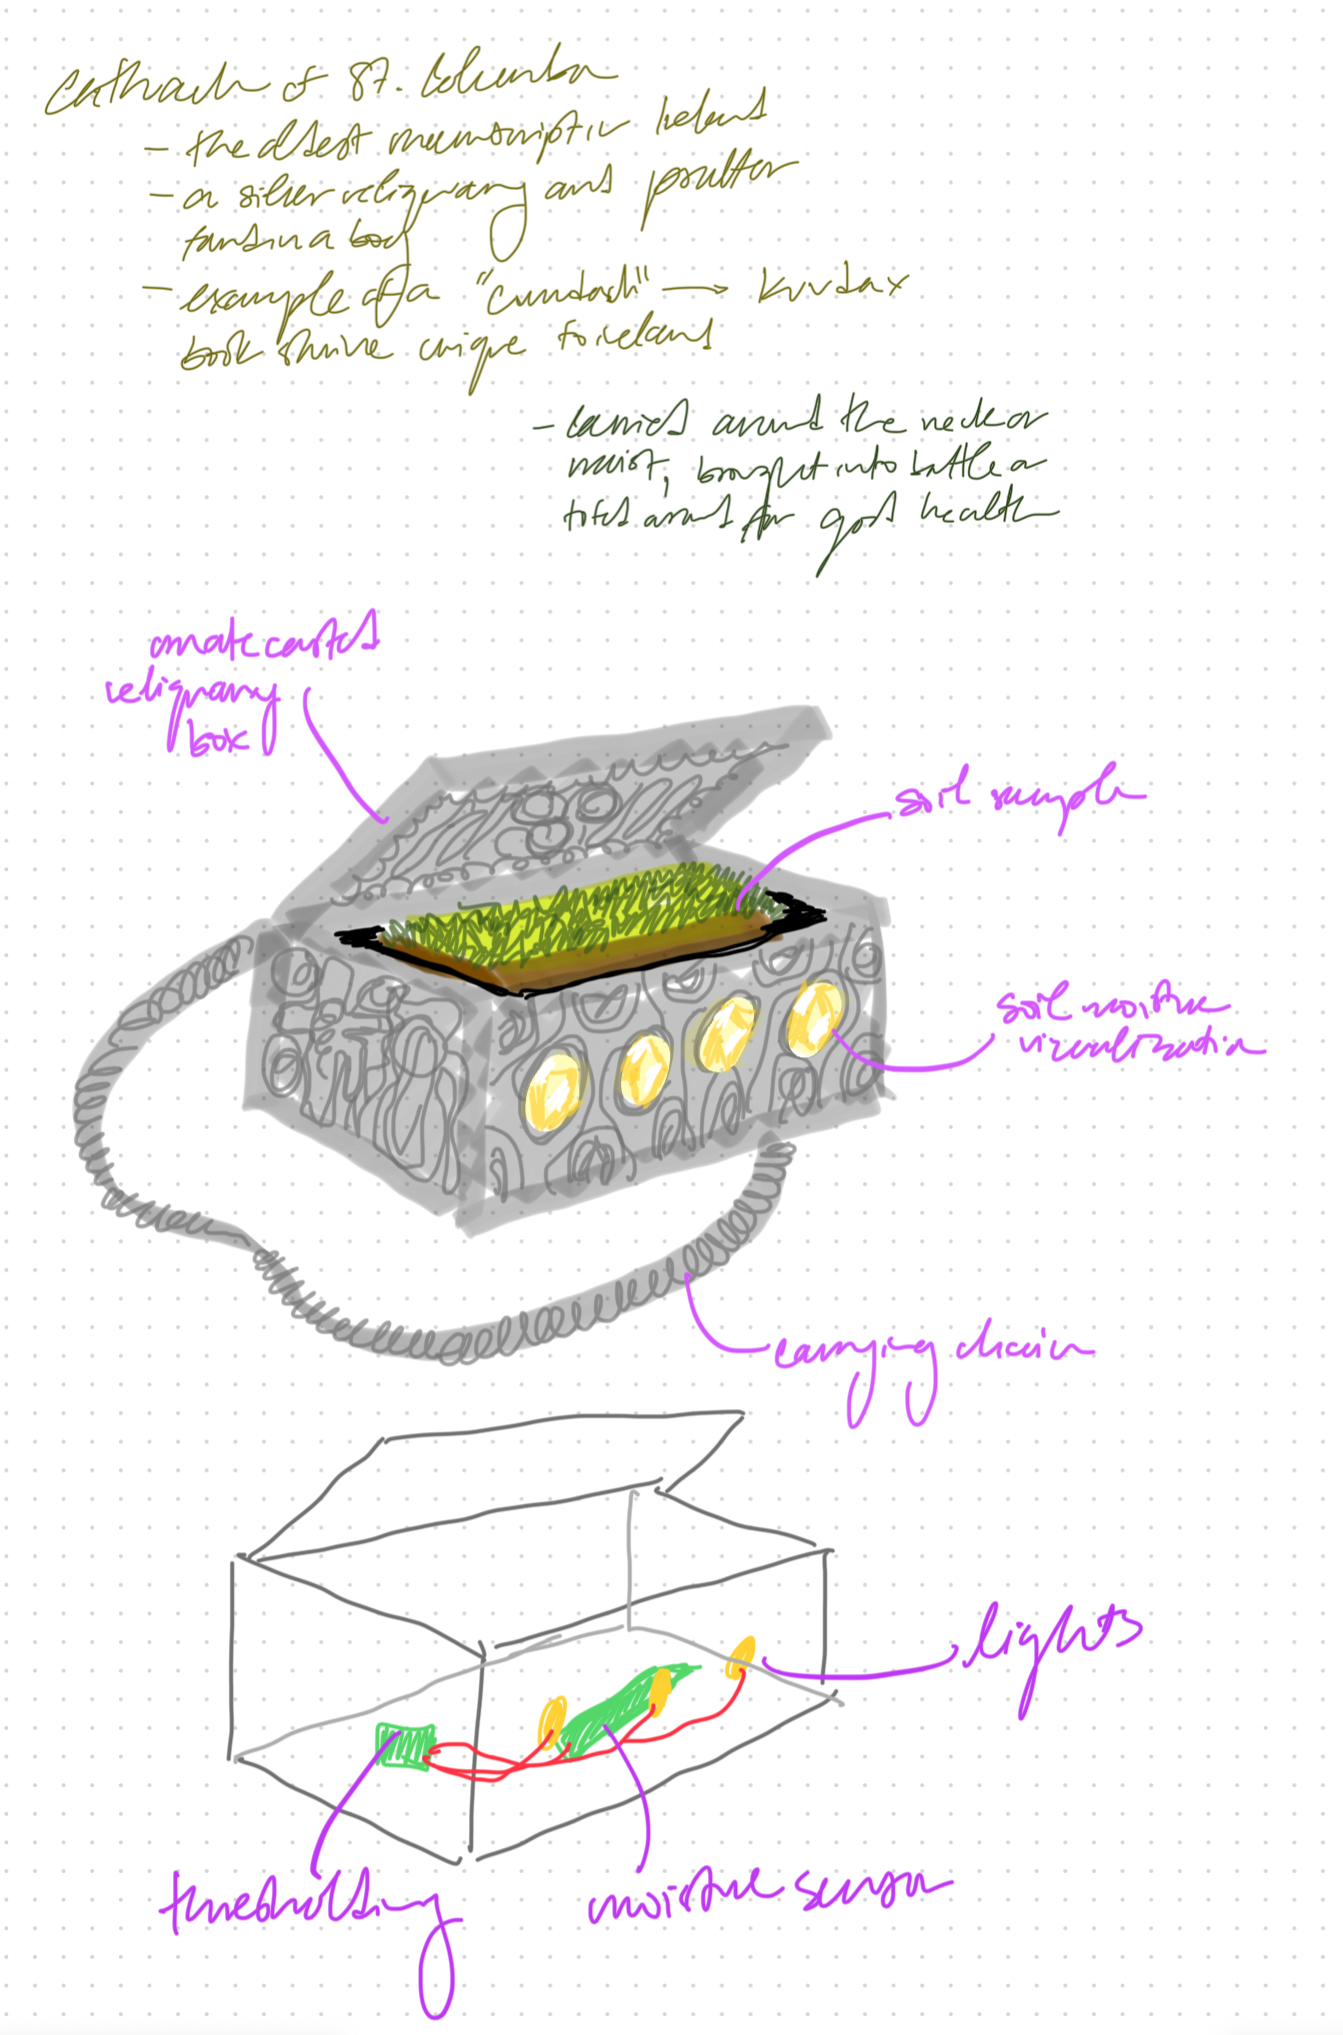 Cathach of St. Columba
- the oldest manuscript in Ireland
- a silver reliquary and psalter
found in a bog
- example of a "cumdach" → kuvdax
book shrine unique to ireland
- carried around the neck or
waist, brought into battle or
toted around for good health
ornate casted
reliquary
box
soil sample
soil moisture
visualization
carrying chain
lights
thresholding
moisture sensor